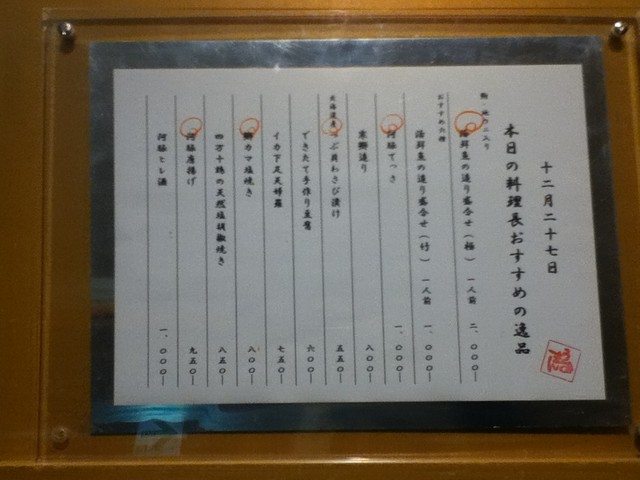 十二月二十七日
本日の料理長おすすめの逸品
活鮮魚の造り盛合せ（極） 一人前 二、〇〇〇―
おすすめ六種
活鮮魚の造り盛合せ（竹） 一人前 一、〇〇〇―
河豚てっさ 一、〇〇〇―
寒鰤造り 八〇〇―
北海道産つぶ貝わさび漬け 五五〇―
できたて手作り豆腐 六〇〇―
イカ下足天婦羅 七五〇―
鰤カマ塩焼き 八〇〇―
四万十鶏の天然塩胡椒焼き 八五〇―
河豚唐揚げ 九五〇―
河豚ヒレ酒 一、〇〇〇―